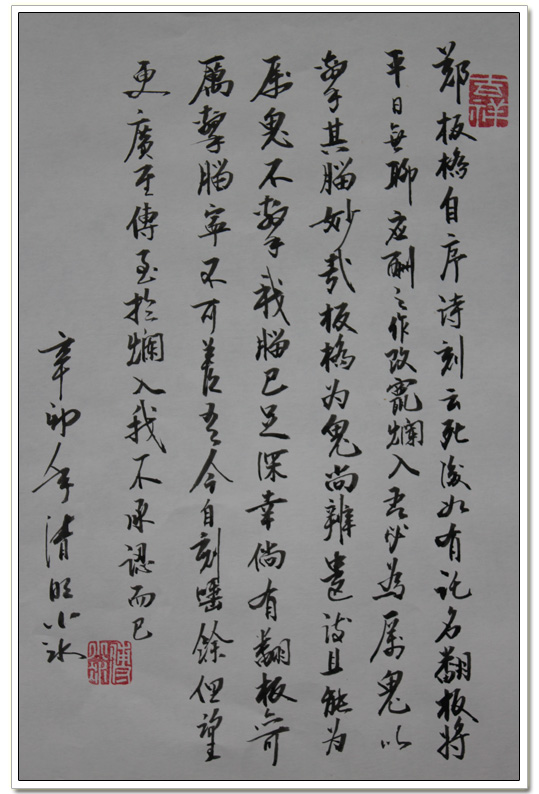 吉祥
郑板橋自序诗刻云死後如有託名翻板将
平日无聊应酬之作改竄爛入吾必為厉鬼以
擊其腦妙哉板橋为鬼尚辦遣诗且能为
厉鬼不擊我腦已足深幸倘有翻板
厲擊腦寧不可 吾今自刻 餘但望
更廣至傳 至於爛入我不承認而已
辛卯年清明小冰